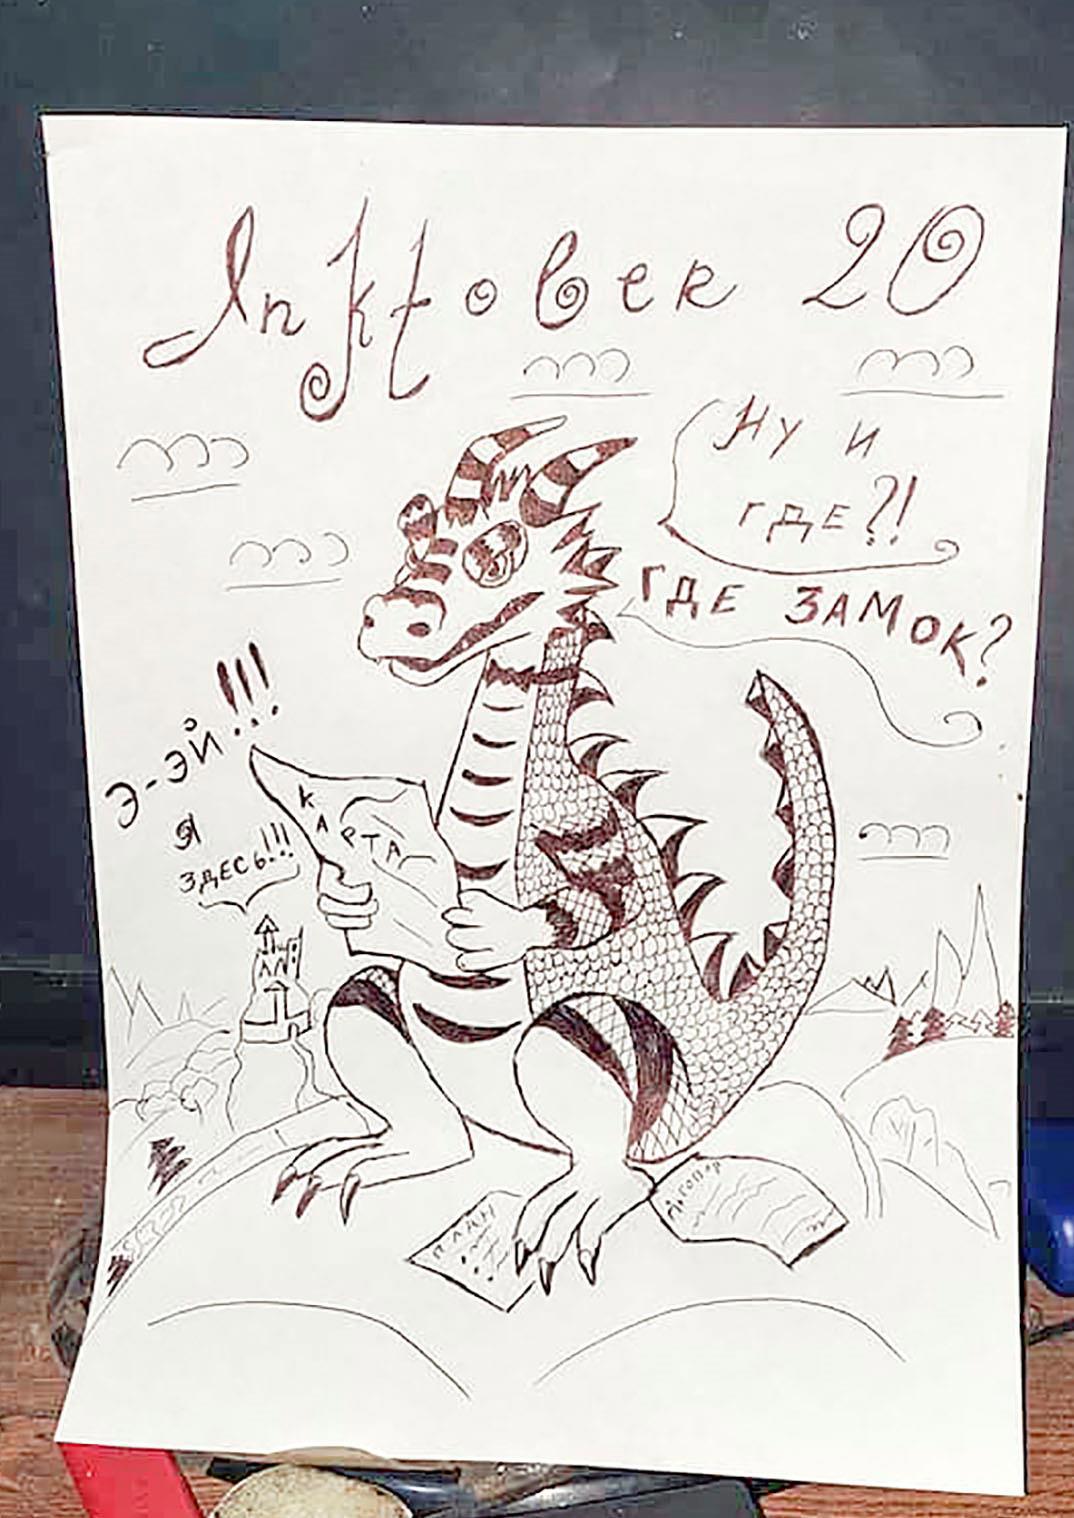 Inktober 20
Ну и
где?!
Где замок?
Э-эй!!!
Я
здесь!!!
Карта
План
Договор